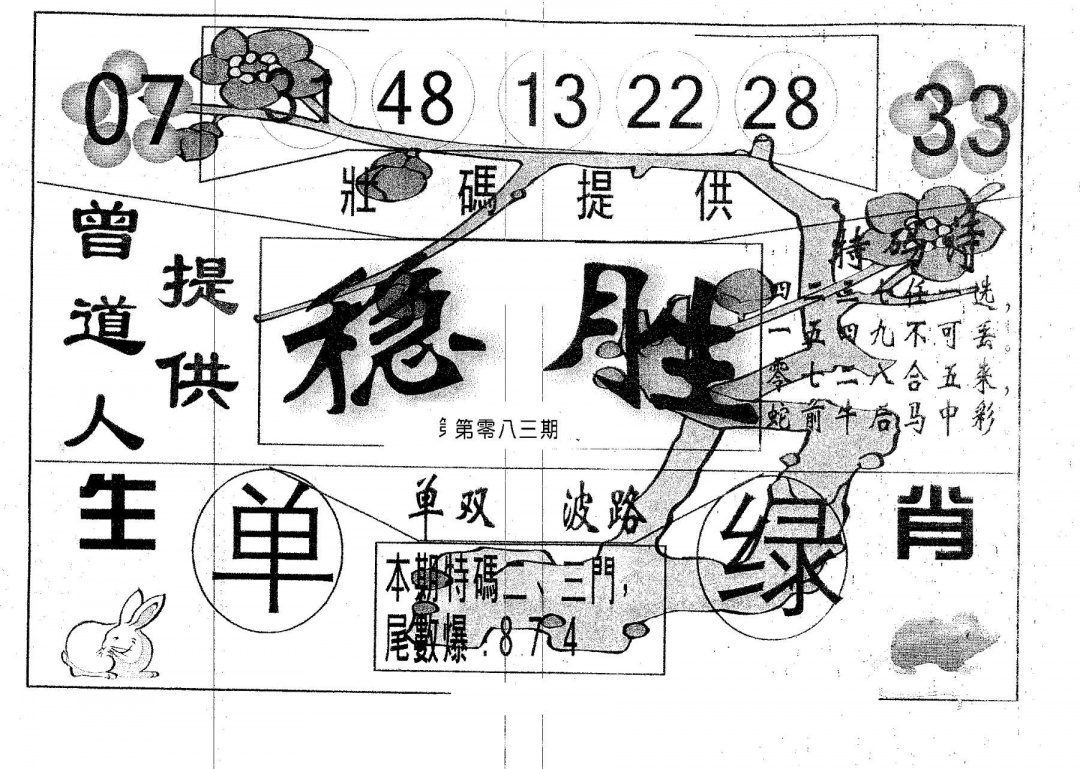 07 31 48 13 22 28 33
壯碼提供
曾道人
提供
特码诗
四二三七任一选，
一五四九不可丢。
零七二八合五来，
蛇前牛后马中彩
稳胜
第零八三期
生肖
单双 波路
单
绿
本期特碼二、三門，
尾數爆：8 7 4